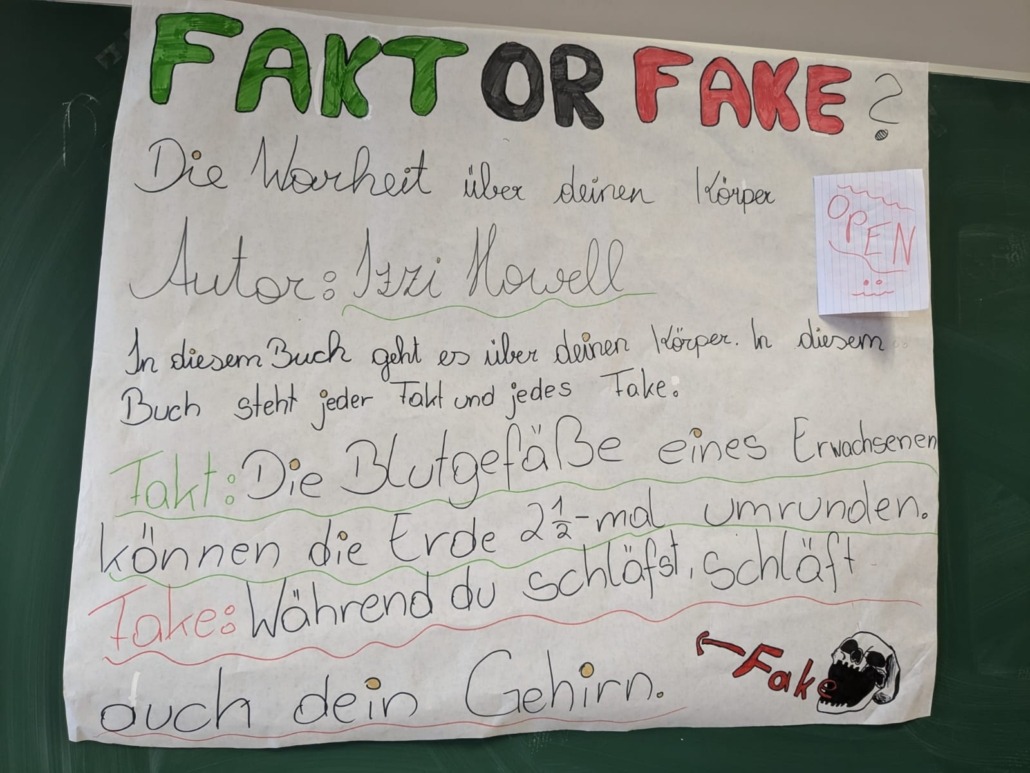 FAKT OR FAKE?
Die Warheit über deinen Körper
OPEN
Autor: Izzi Howell
In diesem Buch geht es über deinen Körper. In diesem
Buch steht jeder Fakt und jedes Fake.
Fakt: Die Blutgefäße eines Erwachsenen
können die Erde 2½-mal umrunden.
Fake: Während du schläfst, schläft
auch dein Gehirn.
Fake